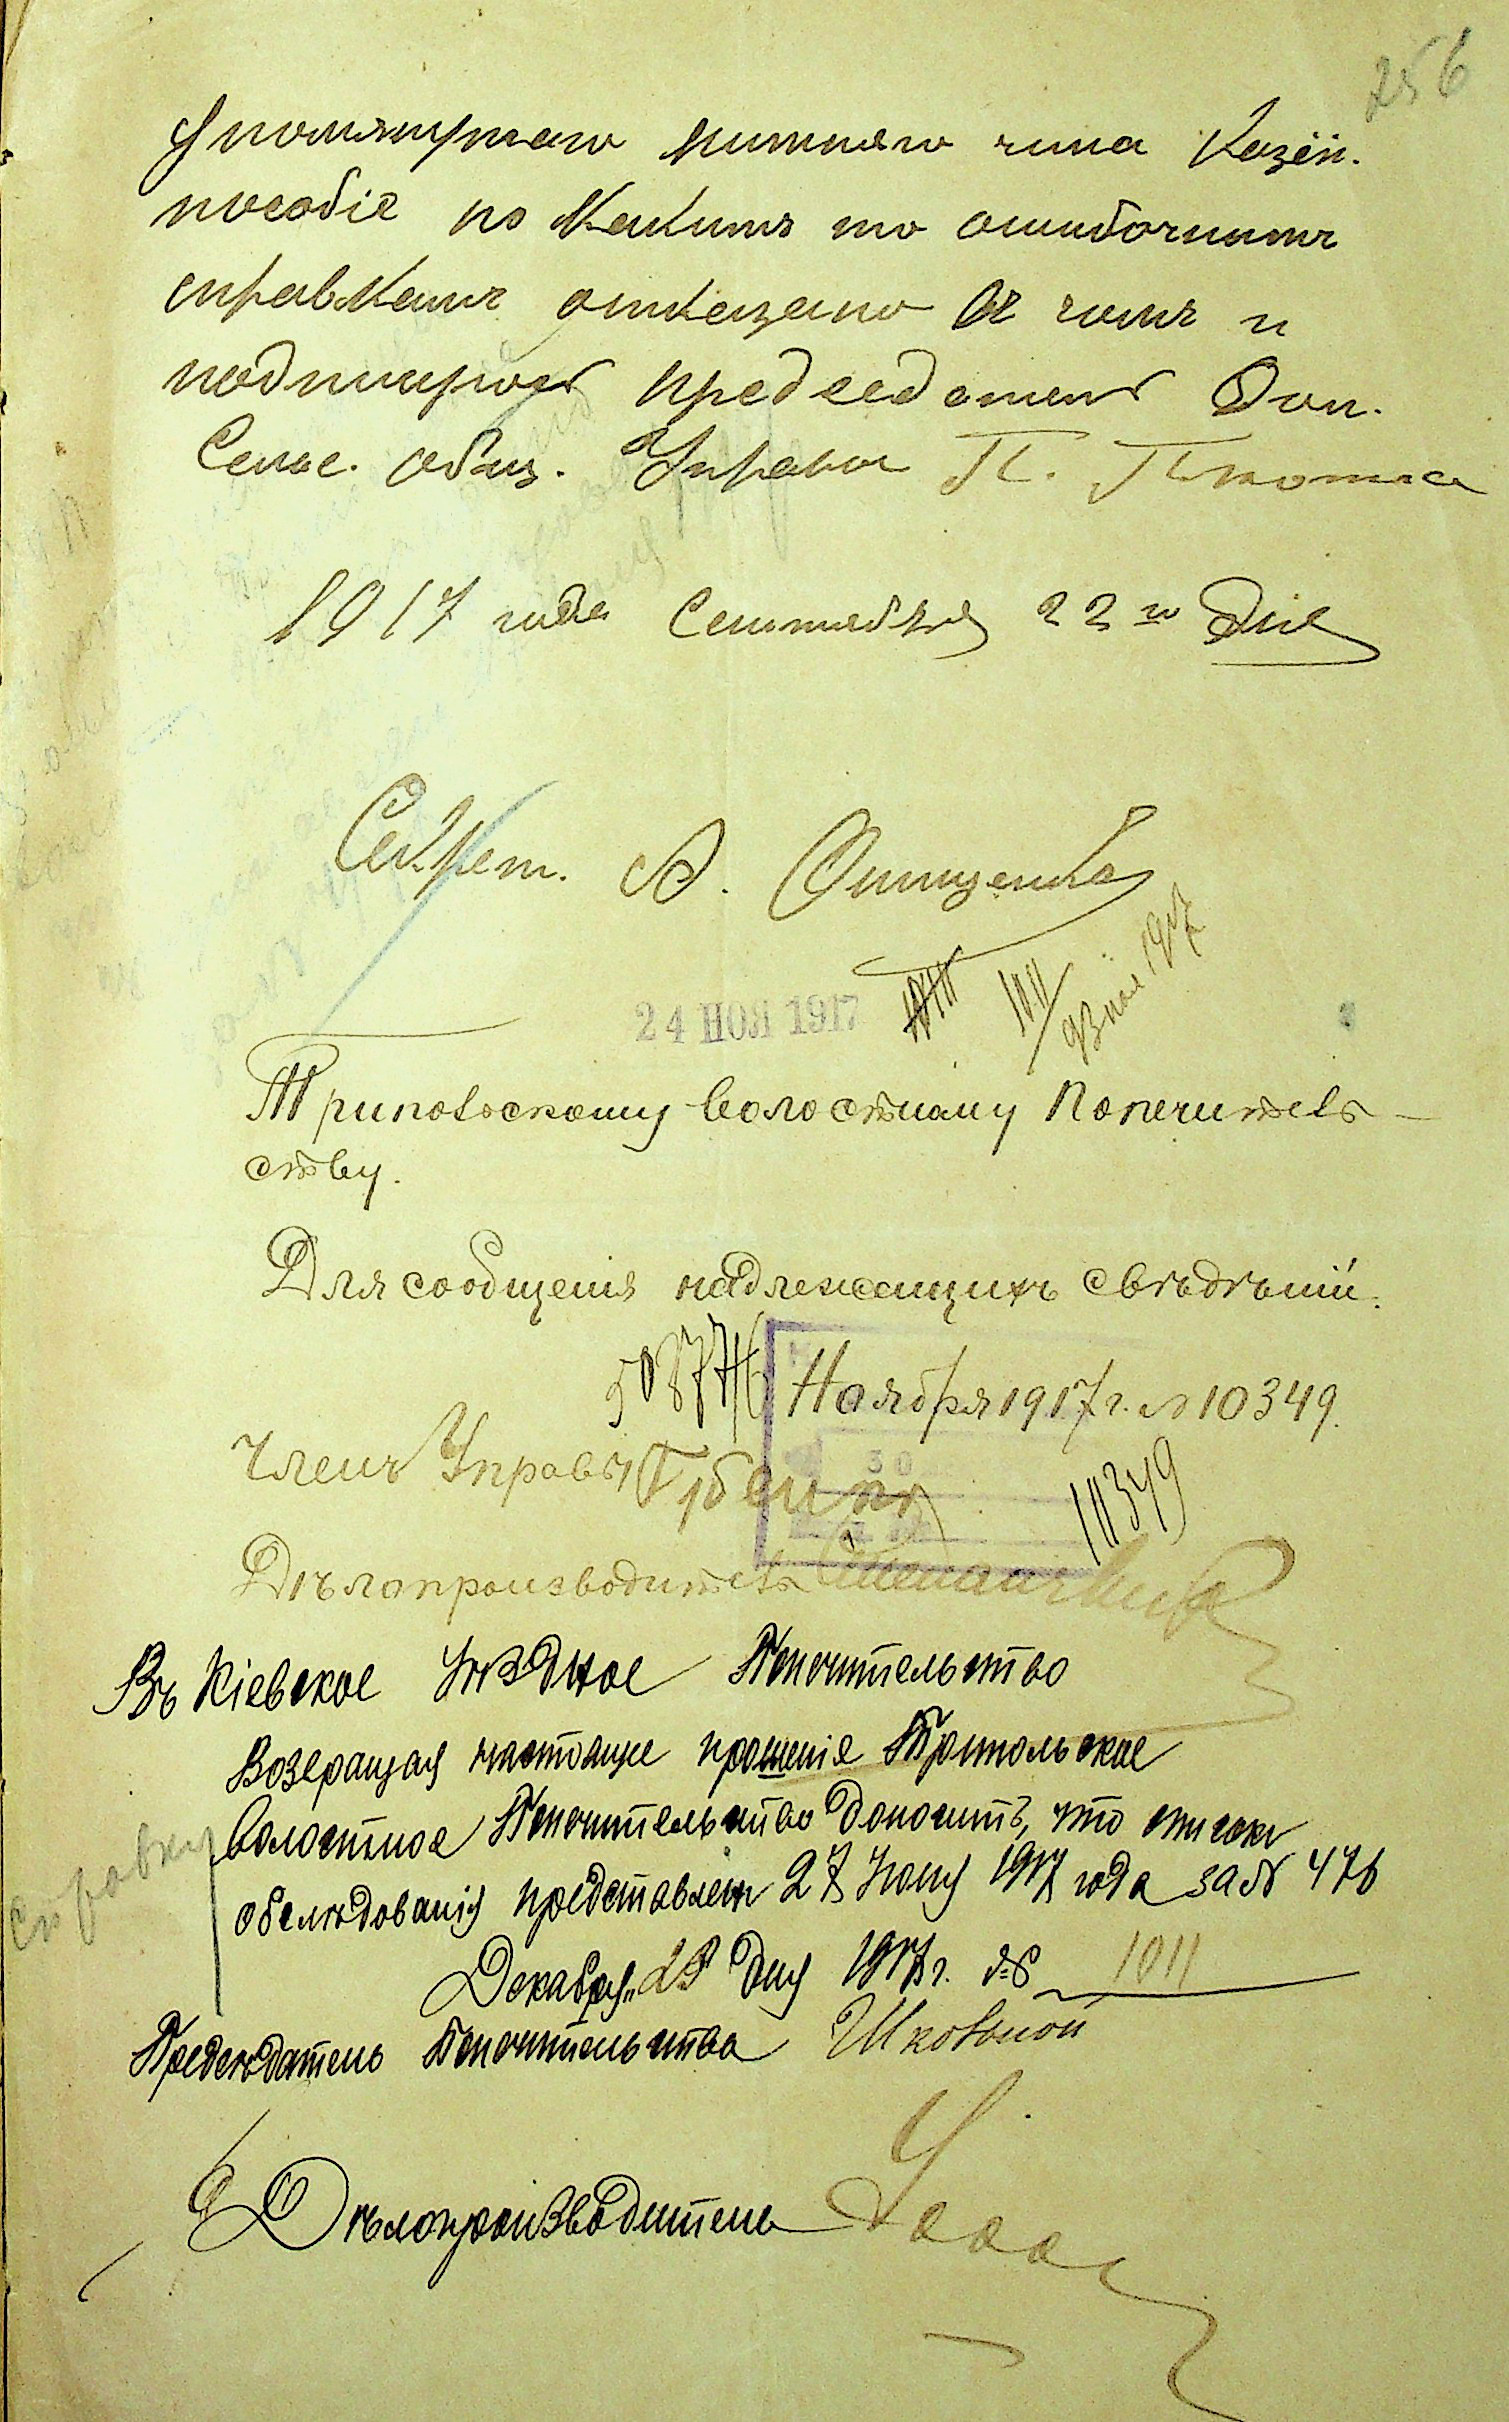 256
упомянутаго нижняго чина Казён.
пособіе по какимъ то ошибочнымъ
справкамъ отказано въ чомъ и
подпишуюсъ председатель
Сельс. общ. Управы П.
1917 года Сентября 22 го дня
Секрет. А. Онищенко
24 НОЯ 1917
1011
23 ноя 1917
Трипольскому волостному Попечитель-
ству.
Для сообщенія надлежащихъ свѣдѣній.
Ноября 1917 г. № 10349.
30
Членъ Управы
10349
Дѣлопроизводитель
Въ Кіевское Уѣздное Попечительство
Возвращая настоящее прошеніе Трипольское
Волостное Попечительство доноситъ, что списокъ
справку
обслѣдованія представленъ 27 Іюня 1917 года за № 476
Декабря „28 дня 1917 г. № 1011
Предсѣдатель Попечительства Шковоной
Дѣлопроизводитель